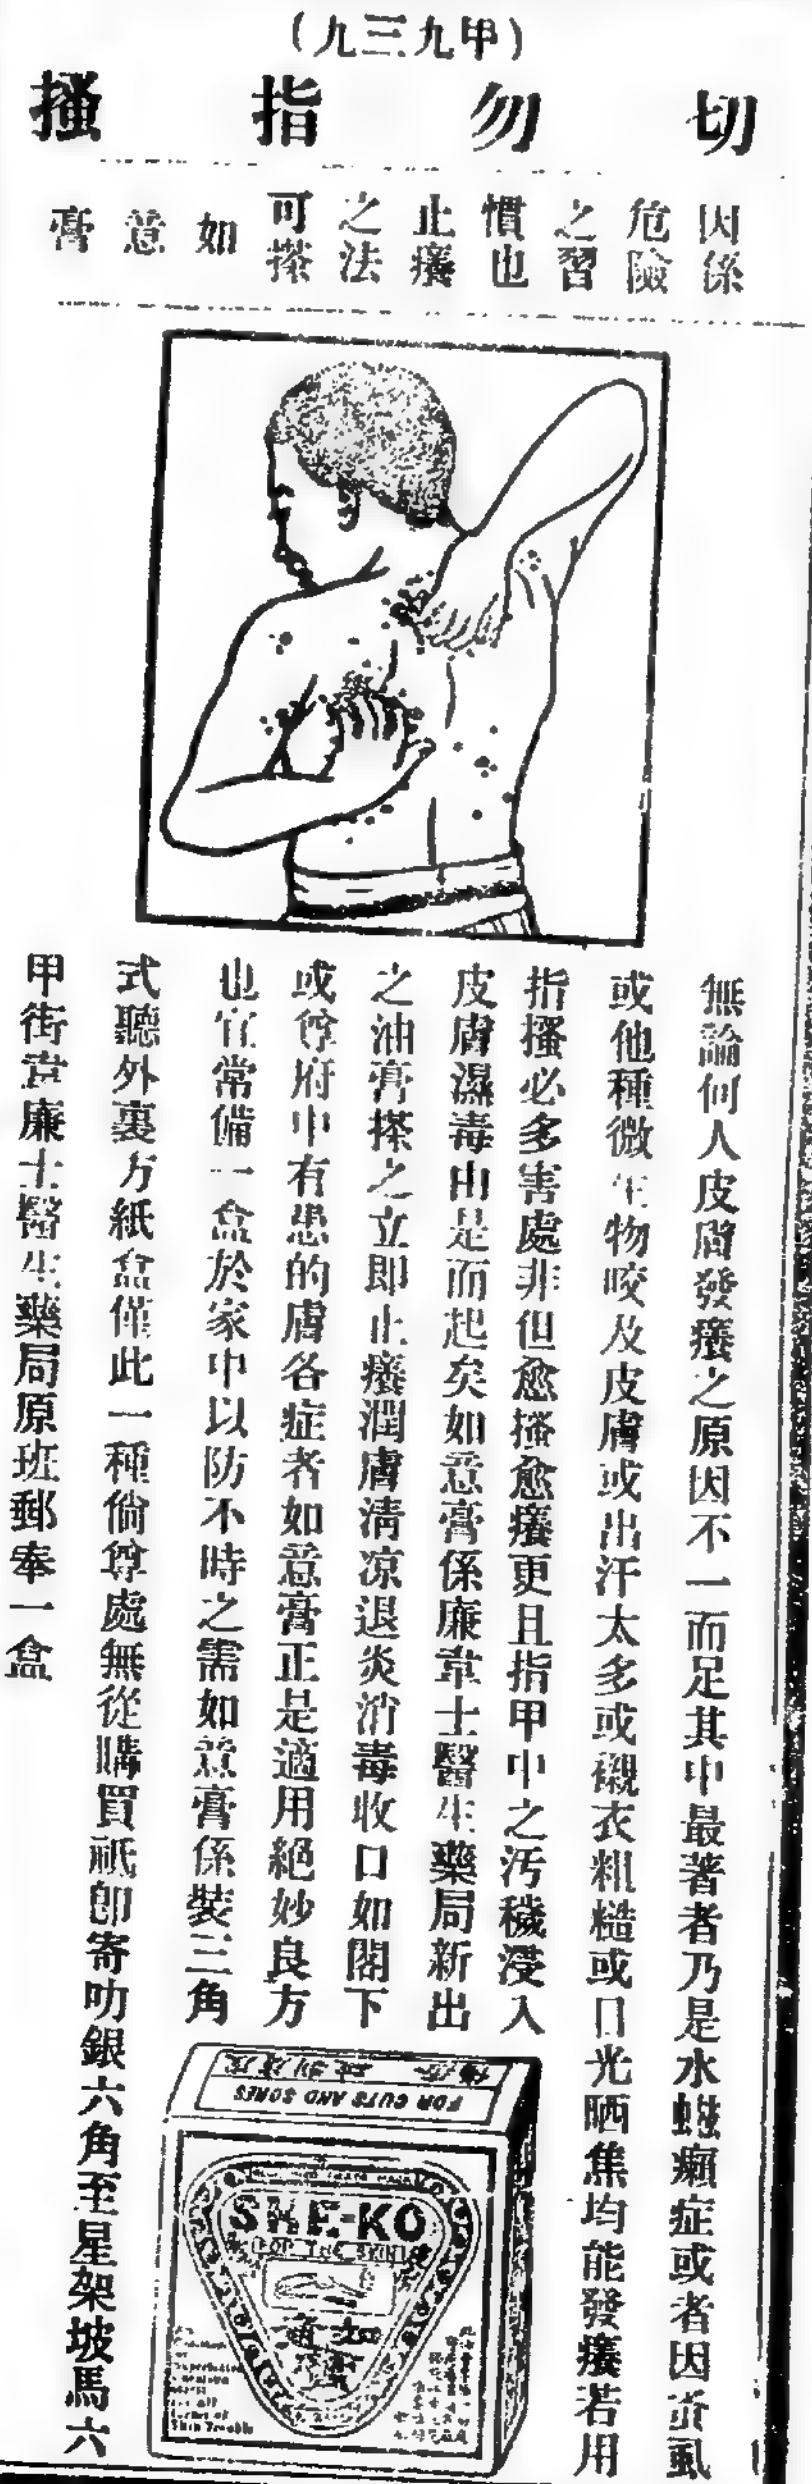 (甲九三九)
切勿指搔
因係
危險
之習
慣也
止癢
之法
可搽
如
意
膏
無論何人皮膚發癢之原因不一而足其中最著者乃是水蟣癩症或者因蚤虱
或他種微生物咬及皮膚或出汗太多或襯衣粗糙或日光晒焦均能發癢若用
指搔必多害處非但愈搔愈癢更且指甲中之汚穢浸入
皮膚濕毒由是而起矣如意膏係廉韋士醫生藥局新出
之油膏搽之立即止癢潤膚淸凉退炎消毒收口如閣下
或尊府中有患的膚各症者如意膏正是適用絕妙良方
也宜常備一盒於家中以防不時之需如意膏係裝三角
式聽外裏方紙盒僅此一種倘尊處無從購買祇卽寄叻銀六角至星架坡馬六
甲街韋廉士醫生藥局原班郵奉一盒
FOR CUTS AND SORES
SHE-KO
FOR THE SKIN
如意
膏